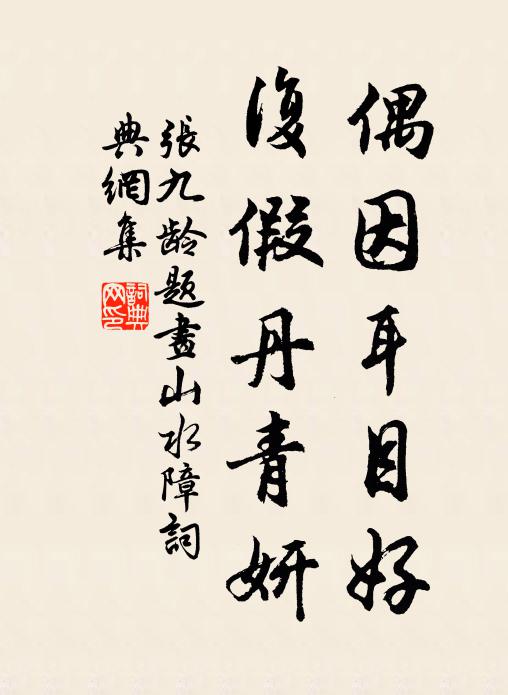 偶因耳目好
復假丹青妍
張九齡題畫山水障詞
典網集
詞典
网印